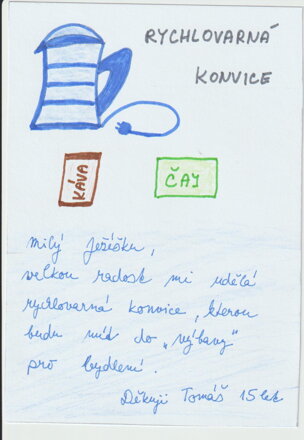 RYCHLOVARNÁ
KONVICE
KÁVA
ČAJ
milý Ježíšku,
velkou radost mi udělá
rychlovarná konvice, kterou
budu mít do „výbavy"
pro bydlení.
Děkuji Tomáš 15 let